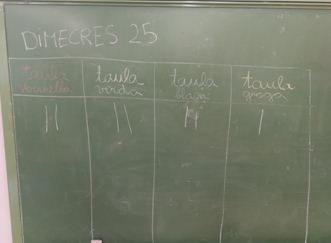 DIMECRES 25
taula vermella
taula verda
taula blava
taula groga